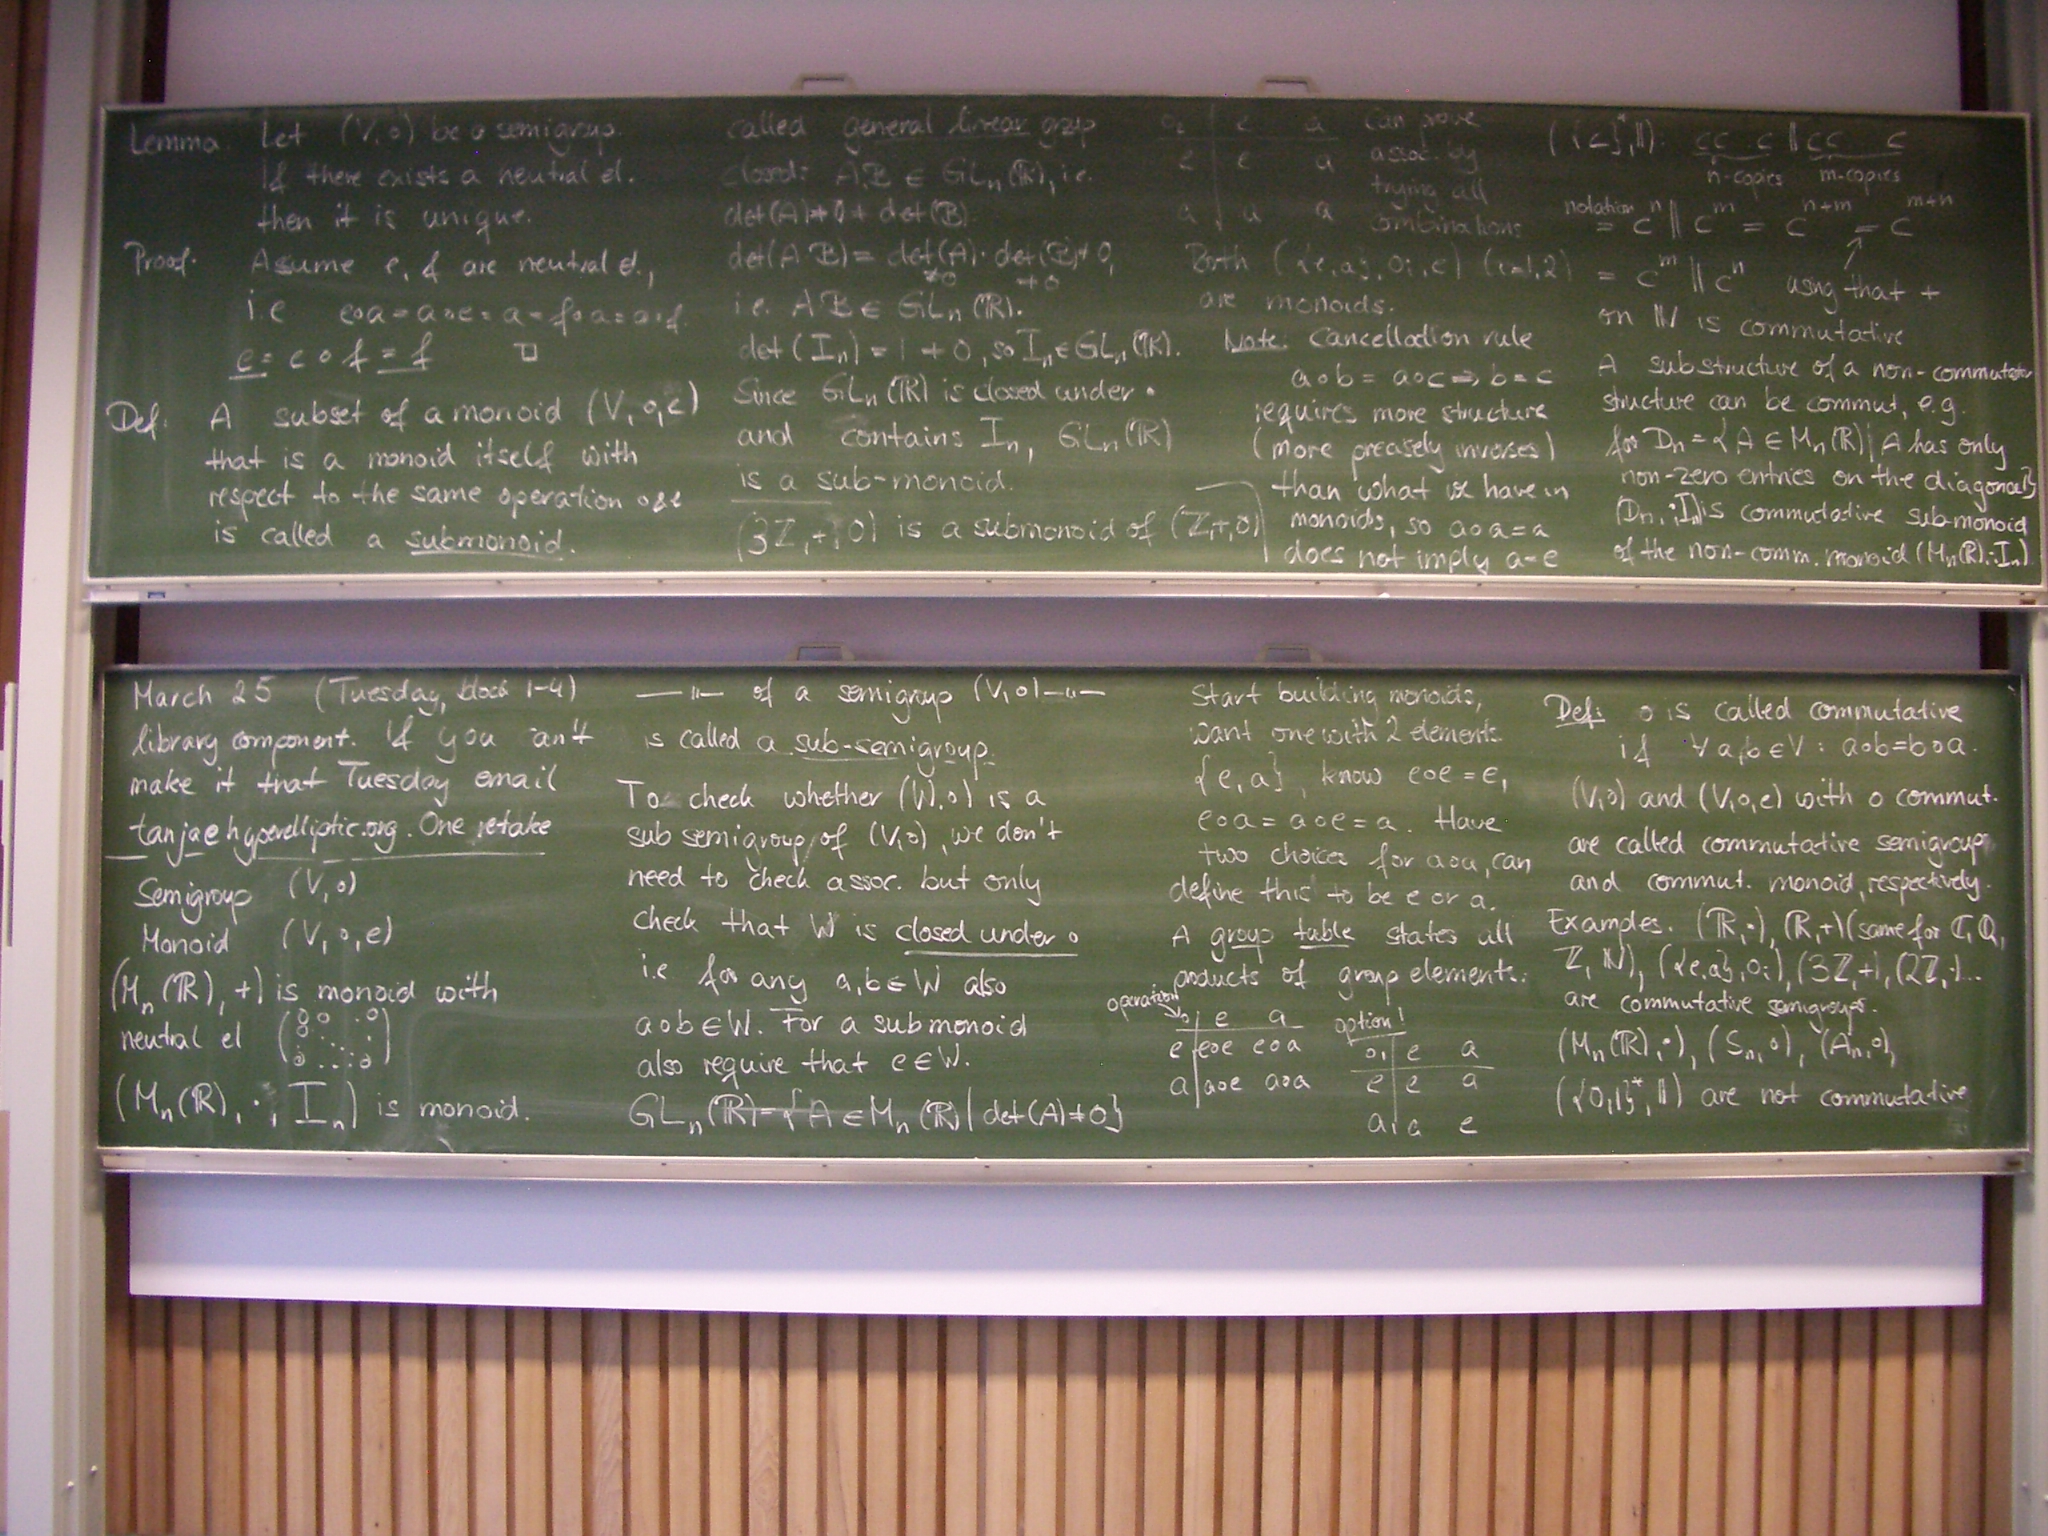 Lemma. Let (V,∘) be a semigroup.
If there exists a neutral el.
then it is unique.
Proof. Assume e, f are neutral el.,
i.e e∘a = a∘e = a = f∘a = a∘f.
e = e∘f = f □
Def. A subset of a monoid (V,∘,e)
that is a monoid itself with
respect to the same operation
is called a submonoid.
called general linear group
closed: A,B ∈ GLn(ℝ), i.e.
det(A)≠0≠det(B)
det(A·B) = det(A)·det(B)≠0,
≠0 ≠0
i.e. A·B ∈ GLn(ℝ).
det(In) = 1 ≠ 0, so In∈GLn(ℝ).
Since GLn(ℝ) is closed under ·
and contains In, GLn(ℝ)
is a sub-monoid.
(3ℤ,+,0) is a submonoid of (ℤ,+,0)
∘2 | e a
e | e a
a | a a
can prove
assoc. by
trying all
combinations
Both ({e,a},∘i,e) (i=1,2)
are monoids.
Note: Cancellation rule
a∘b = a∘c ⇒ b = c
requires more structure
(more precisely inverses)
than what we have in
monoids, so a∘a=a
does not imply a=e
({c}*,||). cc..c || cc c
n-copies m-copies
notation
= c^n || c^m = c^{n+m} = c^{m+n}
= c^m || c^n using that +
on ℕ is commutative
A substructure of a non-commutative
structure can be commut, e.g.
for Dn = {A ∈ Mn(ℝ) | A has only
non-zero entries on the diagonal}
(Dn,·,In) is commutative submonoid
of the non-comm. monoid (Mn(ℝ),·,In)
March 25 (Tuesday, block 1-4)
library component. If you can't
make it that Tuesday email
tanja@hyperelliptic.org. One retake
Semigroup (V,∘)
Monoid (V,∘,e)
(Mn(ℝ),+) is monoid with
neutral el (0 0 ..0
0 ...
0 ....0)
(Mn(ℝ),·,In) is monoid.
—"— of a semigroup (V,∘) —"—
is called a sub-semigroup.
To check whether (W,∘) is a
subsemigroup of (V,∘), we don't
need to check assoc. but only
check that W is closed under ∘
i.e for any a,b∈W also
a∘b∈W. For a submonoid
also require that e∈W.
GLn(ℝ)={A∈Mn(ℝ) | det(A)≠0}
Start building monoids,
want one with 2 elements.
{e,a}, know e∘e = e,
e∘a = a∘e = a. Have
two choices for a∘a, can
define this to be e or a.
A group table states all
products of group elements.
operation
∘ | e a
e | e∘e e∘a
a | a∘e a∘a
option 1
∘1 | e a
e | e a
a | a e
Def: ∘ is called commutative
if ∀a,b∈V: a∘b=b∘a.
(V,∘) and (V,∘,e) with ∘ commut.
are called commutative semigroup
and commut. monoid, respectively.
Examples. (ℝ,·), (ℝ,+)(same for ℂ,ℚ,
ℤ,ℕ), ({e,a},∘i), (3ℤ,+), (2ℤ,·)...
are commutative semigroups.
(Mn(ℝ),·), (Sn,∘), (An,∘),
({0,1}*,||) are not commutative